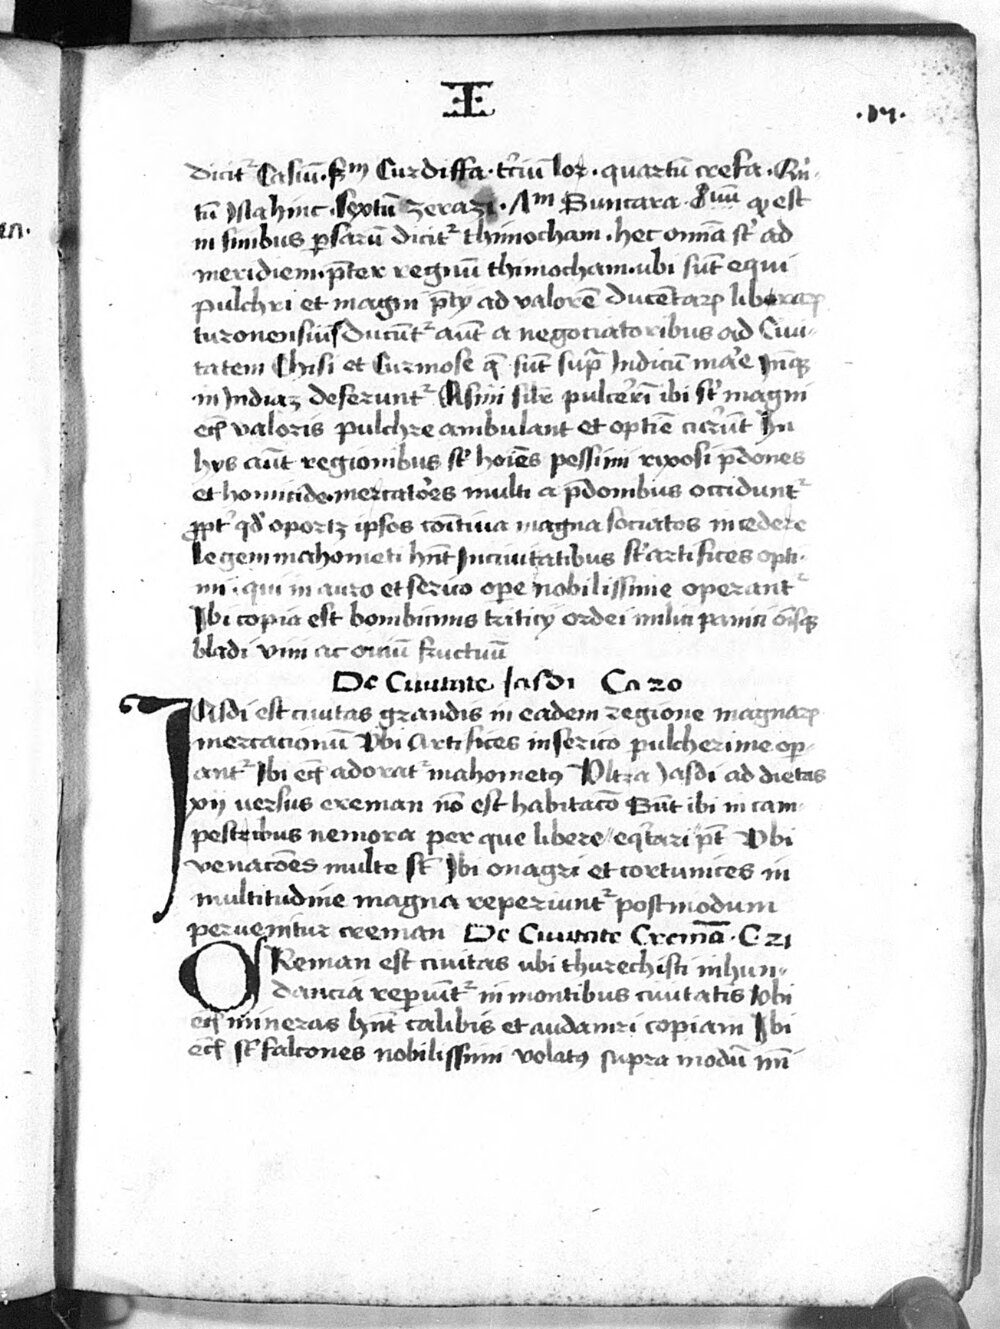 ·E·
.17.
dicit᷑ Casiū. scd̄m Curdissa. t'ciū lor. quartū creſta. Quī-
tū Istahinc. Sextū zerazi. vijᵐ Suncara. viijᵘᵐ qd̄ est
in finibus p̲sarū dicit᷑ thimocham. hec om̄ia sūt ad
meridiem. p̄ter regnū thimocham. ubi sūt equi
pulchri et magni p̄cij ad valorē ducentaꝝ libraꝝ
turonensiū ducūt᷑ aūt a negociatoribus ad Ciui-
tatem Chisi et Curmose q̄ sūt sup̄ Indicū mar̄e Inq̄ꝫ
in Indiaꝫ deferunt᷑ Asini sil̄r pulcer'i ibi sūt magni
ec̄ valoris pulchre ambulant et optīe currūt In
hys aūt regionibus sūt hoīes pessimi rixosi p̄dones
et homicide. mercatōes multi a p̄donibus occidunt᷑
ꝓpt' qd̄ oportꝫ ipsos cōitiua magna sociatos incedere
Legem mahometi hn̄t In ciuitatibus sūt artifices opti-
mi. qui in auro et serico ope nobilissime operant᷑
Ibi copia est bombicinis tritici ordei milij panici oīsqꝫ
bladi vini ac oīuiū fructuū
De Ciuitate Iasdi Ca 20
IAsdi est ciuitas grandis in eadem regione magnaꝝ
mercacionū Vbi Artifices in serico pulcherime op̲-
ant᷑ Ibi ec̄ adorat᷑ mahometꝰ Vltra Iasdi ad dietas
vij versus creman nō est habitac̄o Sūt ibi in cam-
pestribus nemora per que libere eq̄tari pt̄ Vbi
venacōes multe sūt Ibi onagri et coturnices in
multitudine magna reperiunt᷑ postmodum
pervenitur creman De Ciuitate Cremā. C 21
CReman est ciuitas ubi thurechisti in hun-
dancia rep̲iūt᷑ in montibus ciuitatis Vbi
ec̄ mineras hn̄t calibis et andamici copiam Ibi
ec̄ sūt falcones nobilissimi volatꝰ supra modū mī